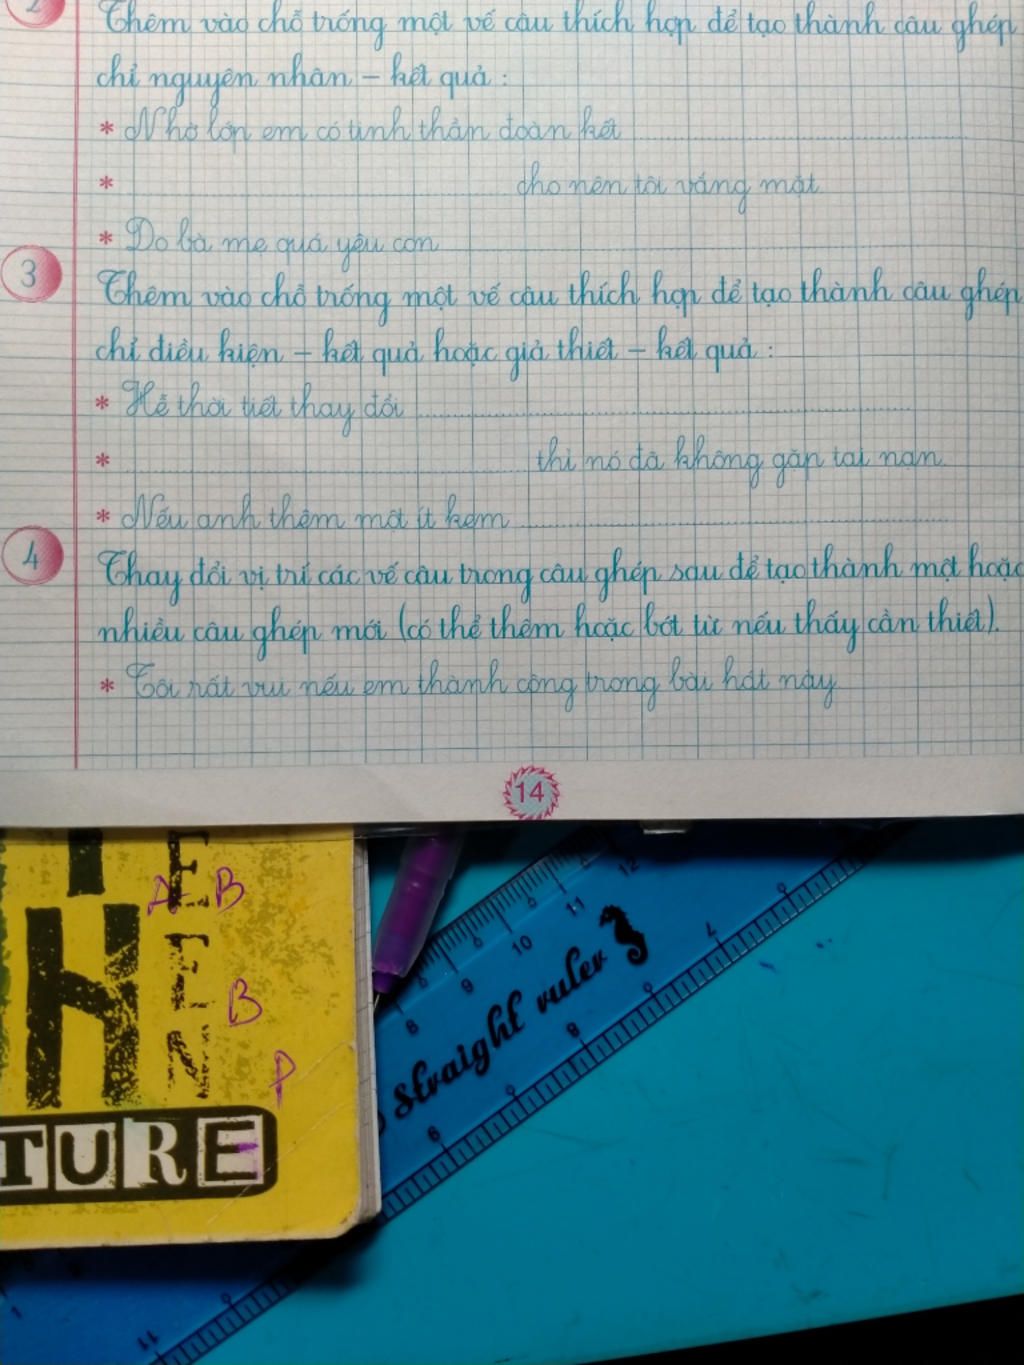 2
Thêm vào chỗ trống một vế câu thích hợp để tạo thành câu ghép
chỉ nguyên nhân - kết quả :
* Nhờ lớp em có tinh thần đoàn kết
* cho nên tôi vắng mặt
* Do bà mẹ quá yêu con
3
Thêm vào chỗ trống một vế câu thích hợp để tạo thành câu ghép
chỉ điều kiện - kết quả hoặc giả thiết - kết quả :
* Hễ thời tiết thay đổi
* thì nó đã không gặp tai nạn
* Nếu anh thêm một ít kem
4
Thay đổi vị trí các vế câu trong câu ghép sau để tạo thành một hoặc
nhiều câu ghép mới (có thể thêm hoặc bớt từ nếu thấy cần thiết).
* Tôi rất vui nếu em thành công trong bài hát này
14
A-B
B
P
TURE
Straight ruler
8 9 10 11 12